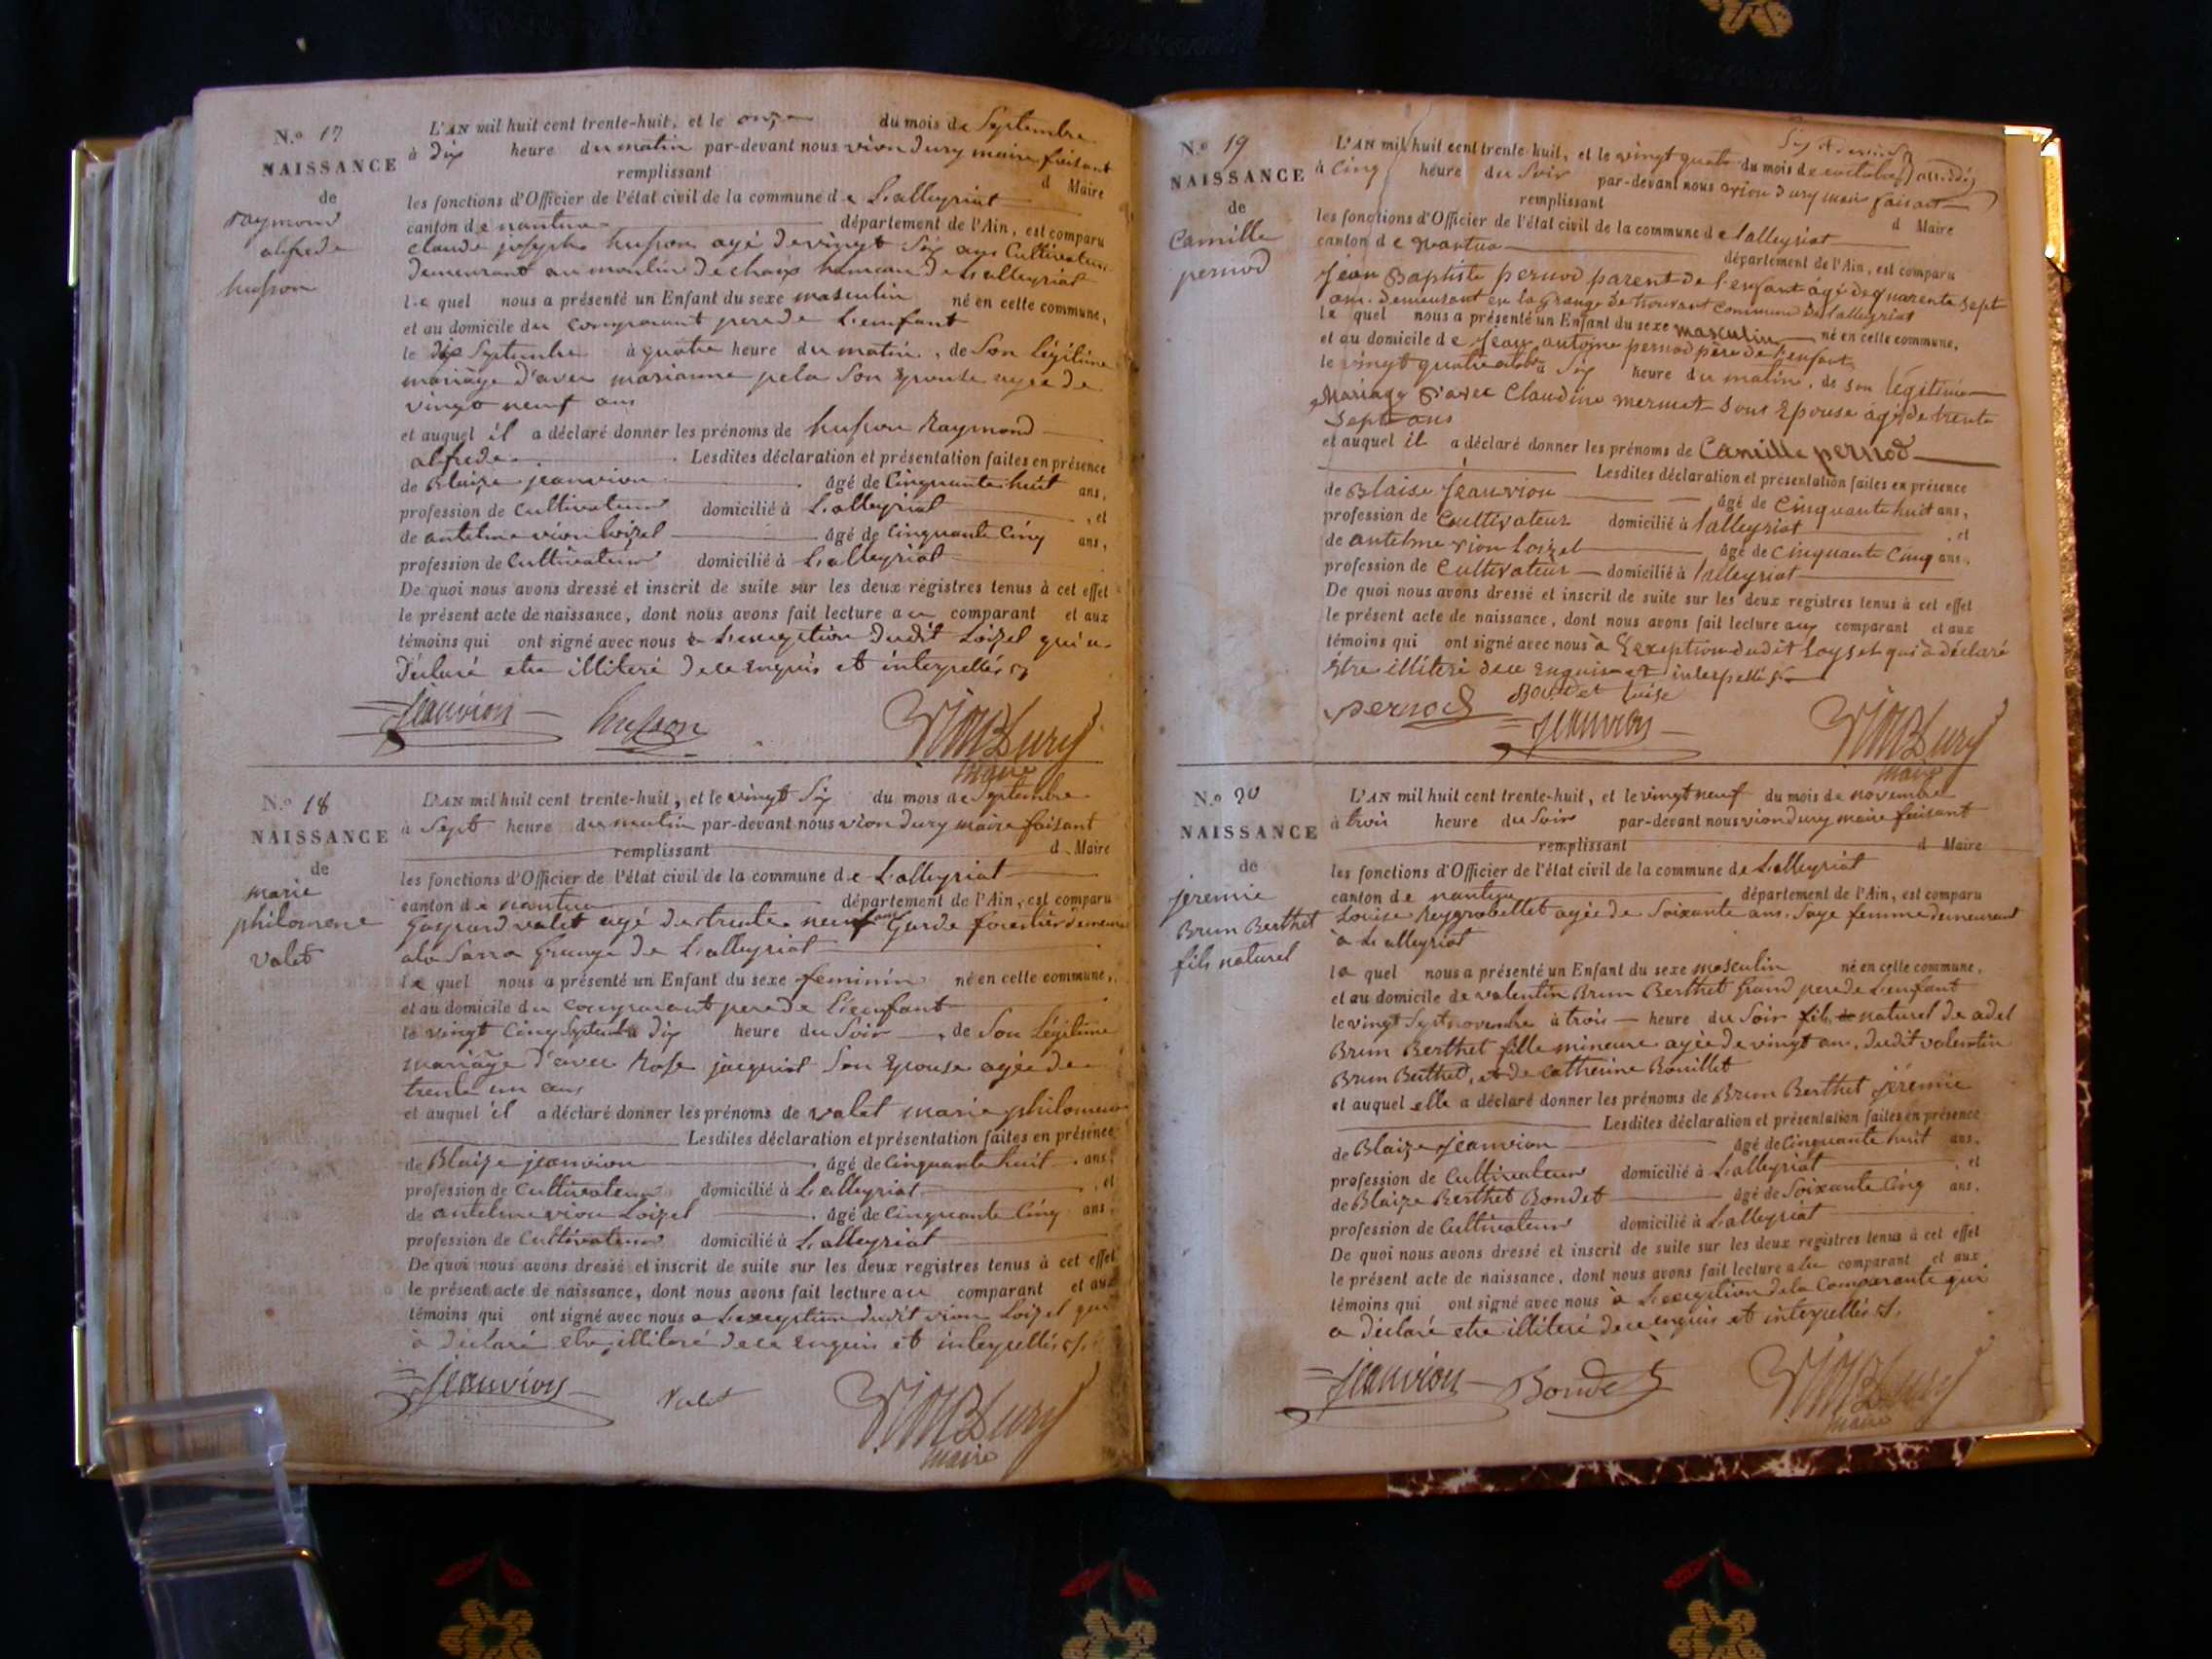 N.º 17
NAISSANCE
de
raymond
alfrede
husson
L'AN mil huit cent trente-huit, et le onze du mois de Septembre
à dix heure du matin par-devant nous vion dury maire faisant
remplissant d Maire
les fonctions d'Officier de l'état civil de la commune de Lalleyriat
canton de nantua département de l'Ain, est comparu
claude joseph husson agé de vingt Six ans Cultivateur
demeurant au moulin de chaix hameau de Lalleyriat
le quel nous a présenté un Enfant du sexe masculin né en cette commune,
et au domicile du comparant pere de L'enfant
le dix Septembre à quatre heure du matin, de Son Légitime
mariage d'avec marianne pela Son Epouse agée de
vingt neuf ans
et auquel il a déclaré donner les prénoms de husson Raymond
alfrede Lesdites déclaration et présentation faites en présence
de Blaize jeanvion âgé de Cinquante huit ans,
profession de Cultivateur domicilié à Lalleyriat, et
de antelme vion loizel âgé de Cinquante Cinq ans,
profession de Cultivateur domicilié à Lalleyriat
De quoi nous avons dressé et inscrit de suite sur les deux régistres tenus à cet effet
le présent acte de naissance, dont nous avons fait lecture au comparant et aux
témoins qui ont signé avec nous a L'exception dudit Loizel qui a
Déclaré etre illiteré de ce enquis et interpellés
Jeanvion husson Vion Dury
maire
N.º 18
NAISSANCE
de
marie
philomene
valet
L'AN mil huit cent trente-huit, et le vingt Six du mois de Septembre
à Sept heure du matin par-devant nous vion dury maire faisant
remplissant d Maire
les fonctions d'Officier de l'état civil de la commune de Lalleyriat
canton de nantua département de l'Ain, est comparu
Gaspard valet agé de trente neuf ans Garde forestier
a la Sarra Grange de Lalleyriat
le quel nous a présenté un Enfant du sexe feminin né en cette commune,
et au domicile du comparant pere de L'enfant
le vingt Cinq Septembre dix heure du Soir, de Son Légitime
mariage d'avec Rose jacquiot Son Epouse agée de
trente un ans
et auquel il a déclaré donner les prénoms de valet marie philomene
Lesdites déclaration et présentation faites en présence
de Blaize jeanvion âgé de Cinquante huit ans,
profession de Cultivateur domicilié à Lalleyriat, et
de antelme vion Loizel âgé de Cinquante Cinq ans,
profession de Cultivateur domicilié à Lalleyriat
De quoi nous avons dressé et inscrit de suite sur les deux régistres tenus à cet effet
le présent acte de naissance, dont nous avons fait lecture au comparant et aux
témoins qui ont signé avec nous a L'exception dudit vion Loizel qui
à déclaré etre illiteré de ce enquis et interpellés
Jeanvion Valet Vion Dury
maire
N.º 19
NAISSANCE
de
Camille
pernod
L'AN mil huit cent trente-huit, et le vingt quatre du mois de octobre
à Cinq heure du Soir par-devant nous vion dury maire faisant
remplissant d Maire
les fonctions d'Officier de l'état civil de la commune de Lalleyriat
canton de Nantua département de l'Ain, est comparu
Jean Baptiste pernod parent de l'enfant agé de quarente Sept
ans. demeurant en la Grange de commune de Lalleyriat
le quel nous a présenté un Enfant du sexe masculin né en cette commune,
et au domicile de Jean antoine pernod père de l'enfant
le vingt quatre octobre à Six heure du matin, de son légitime
Mariage D'avec Claudine mermet Sous Epouse agé de trente
Sept ans
et auquel il a déclaré donner les prénoms de Camille pernod
Lesdites déclaration et présentation faites en présence
de Blaise Jeanvion âgé de Cinquante huit ans,
profession de Cultivateur domicilié à Lalleyriat, et
de antelme vion loizel âgé de Cinquante Cinq ans,
profession de Cultivateur domicilié à lalleyriat
De quoi nous avons dressé et inscrit de suite sur les deux registres tenus à cet effet
le présent acte de naissance, dont nous avons fait lecture aux comparant et aux
témoins qui ont signé avec nous à L'exeption dudit Loysel qui à déclaré
être illitéré de ce Enquis et interpellé
pernod Jeanvion Vion Dury
maire
N.º 20
NAISSANCE
de
jeremie
Brun Berthet
fils naturel
L'AN mil huit cent trente-huit, et le vingt neuf du mois de novembre
à trois heure du Soir par-devant nous vion dury maire faisant
remplissant d Maire
les fonctions d'Officier de l'état civil de la commune de Lalleyriat
canton de nantua département de l'Ain, est comparu
Louise Reygrobellet agée de Soixante ans. Sage femme demeurant
à Lalleyriat
la quel nous a présenté un Enfant du sexe masculin né en cette commune,
et au domicile de valentin Brun Berthet Grand pere de L'enfant
le vingt Sept novembre à trois heure du Soir fils naturel de adel
Brun Berthet fille mineure agée de vingt ans, dudit valentin
Brun Berthet, et de catherine Bouillet
et auquel elle a déclaré donner les prénoms de Brun Berthet jéremie
Lesdites déclaration et présentation faites en présence
de Blaize Jeanvion âgé de Cinquante huit ans,
profession de Cultivateur domicilié à Lalleyriat, et
de Blaize Berthet Bondet âgé de Soixante Cinq ans,
profession de Cultivateur domicilié à Lalleyriat
De quoi nous avons dressé et inscrit de suite sur les deux registres tenus à cet effet
le présent acte de naissance, dont nous avons fait lecture a la comparant et aux
témoins qui ont signé avec nous à L'exception de la Comparante qui
a déclaré etre illiteré de ce enquis et interpellés
Jeanvion Bondet Vion Dury
maire